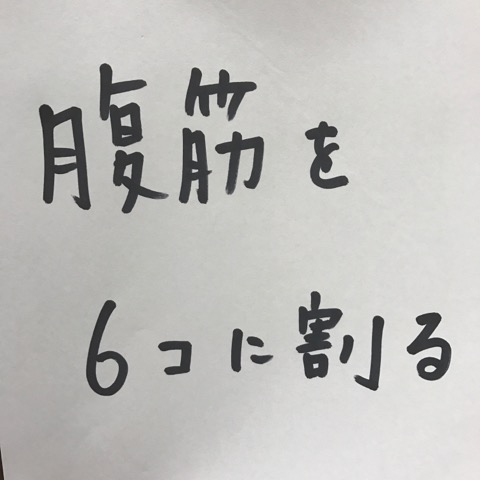 腹筋を
6コに割る